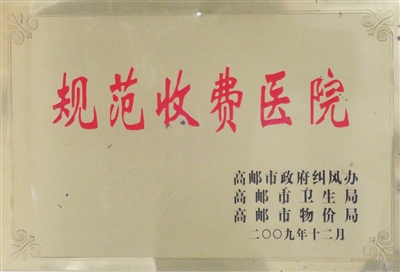 规范收费医院
高邮市政府纠风办
高邮市卫生局
高邮市物价局
二〇〇九年十二月